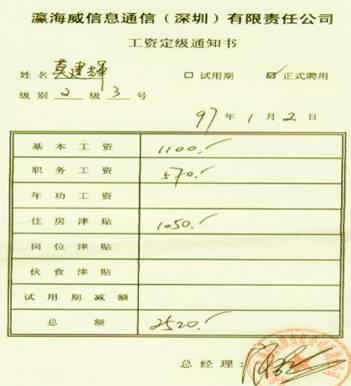 瀛海威信息通信（深圳）有限责任公司
工资定级通知书
姓名 莫建辉 □试用期 ☑正式聘用
级别 2 级 3 号
97年1月2日
基本工资 1100.
职务工资 570.
年功工资
住房津贴 1050.
岗位津贴
伙食津贴
试用期减额
总额 2520.
总经理：